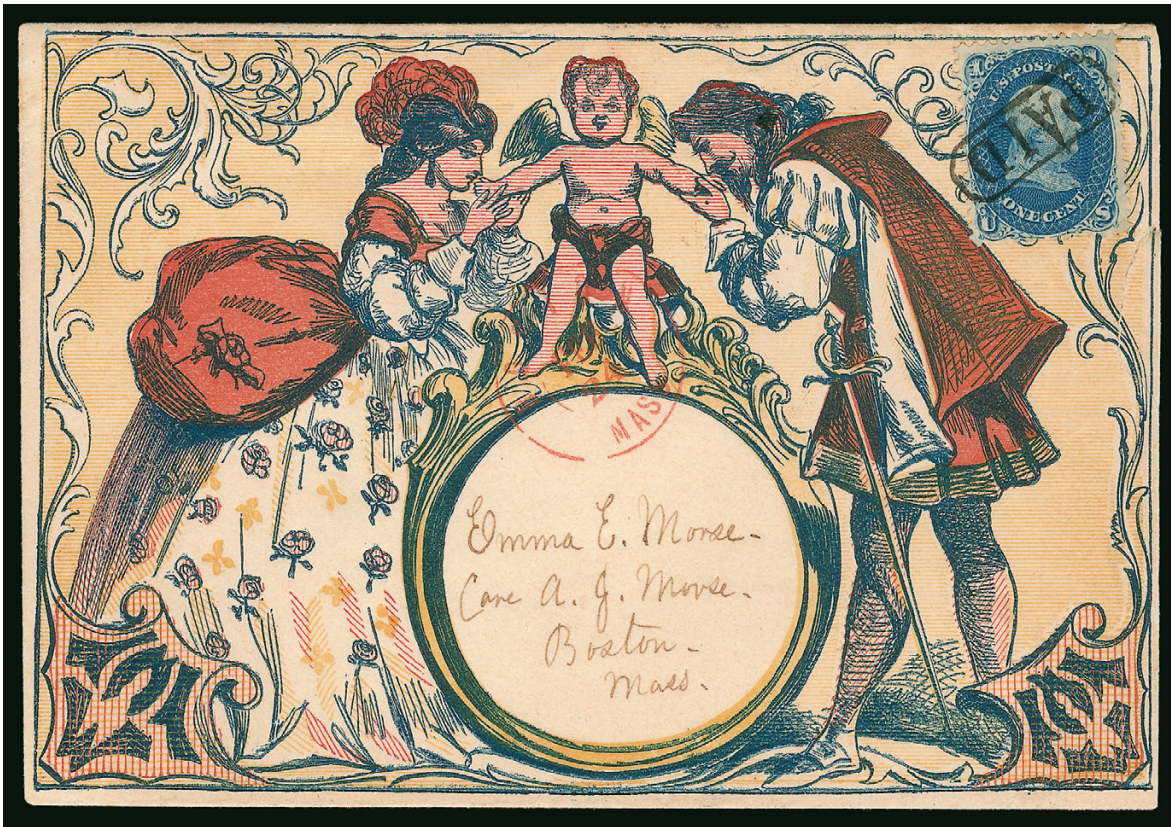 1 U.S. POSTAGE 1
PAID
ONE CENT
U S
MAS
Emma E. Morse.
Care A. J. Morse.
Boston.
Mass.